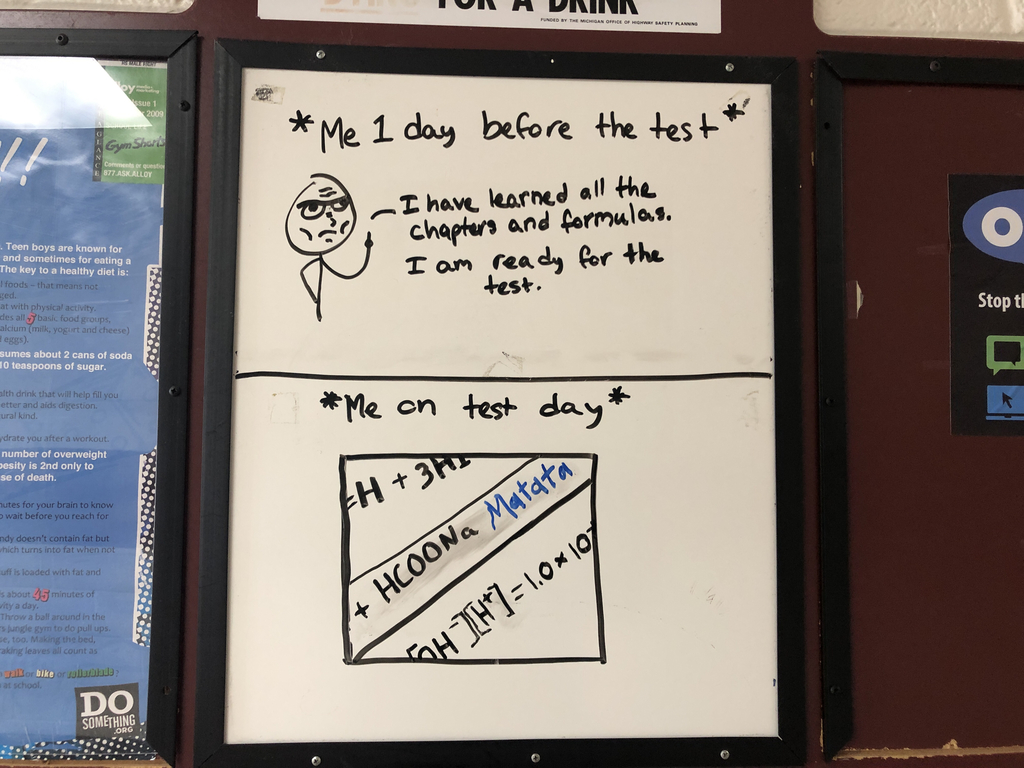 FOR A DRINK
FUNDED BY THE MICHIGAN OFFICE OF HIGHWAY SAFETY PLANNING
*Me 1 day before the test*
I have learned all the
chapters and formulas.
I am ready for the
test.
*Me on test day*
=H + 3HI
+ HCOONa Matata
[OH⁻][H⁺] = 1.0 × 10⁻
!!
Issue 1
2009
GymShorts
Comments or questio
877.ASK.ALLOY
. Teen boys are known for
and sometimes for eating a
The key to a healthy diet is:
foods – that means not
ged.
at with physical activity.
des all 5 basic food groups,
alcium (milk, yogurt and cheese)
f eggs).
sumes about 2 cans of soda
10 teaspoons of sugar.
alth drink that will help fill you
etter and aids digestion.
ural kind.
ydrate you after a workout.
number of overweight
besity is 2nd only to
se of death.
nutes for your brain to know
o wait before you reach for
ndy doesn't contain fat but
which turns into fat when not
uff is loaded with fat and
s about 45 minutes of
vity a day.
Throw a ball around in the
s jungle gym to do pull ups.
se, too. Making the bed,
raking leaves all count as
walk or bike or rollerblade
at school.
DO
SOMETHING
.ORG
O
Stop th